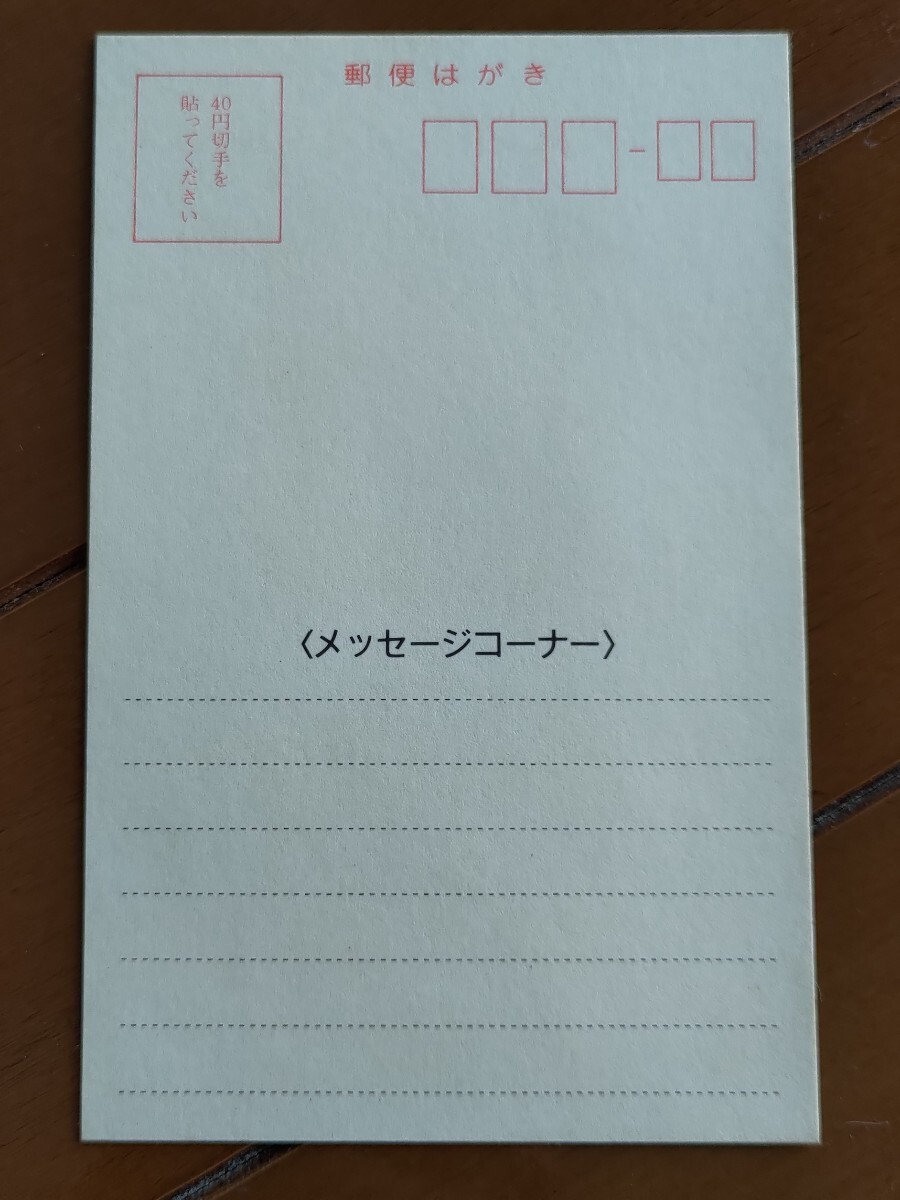 郵便はがき
40円切手を
貼ってください
–
〈メッセージコーナー〉